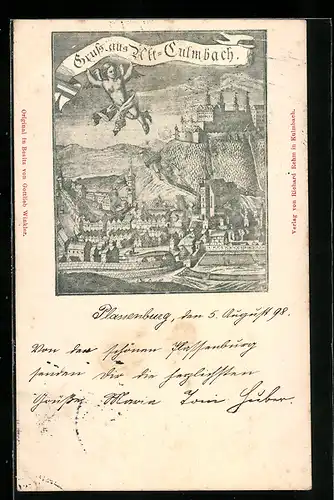 Gruß aus Alt-Culmbach.
Original in Besitz von Gottlieb Winkler.
Verlag von Richard Rehm in Kulmbach.
Plassenburg, den 5. August 98.
Von der schönen Plassenburg
senden Dir die herzlichsten
Grüße Marie Toni Huber.